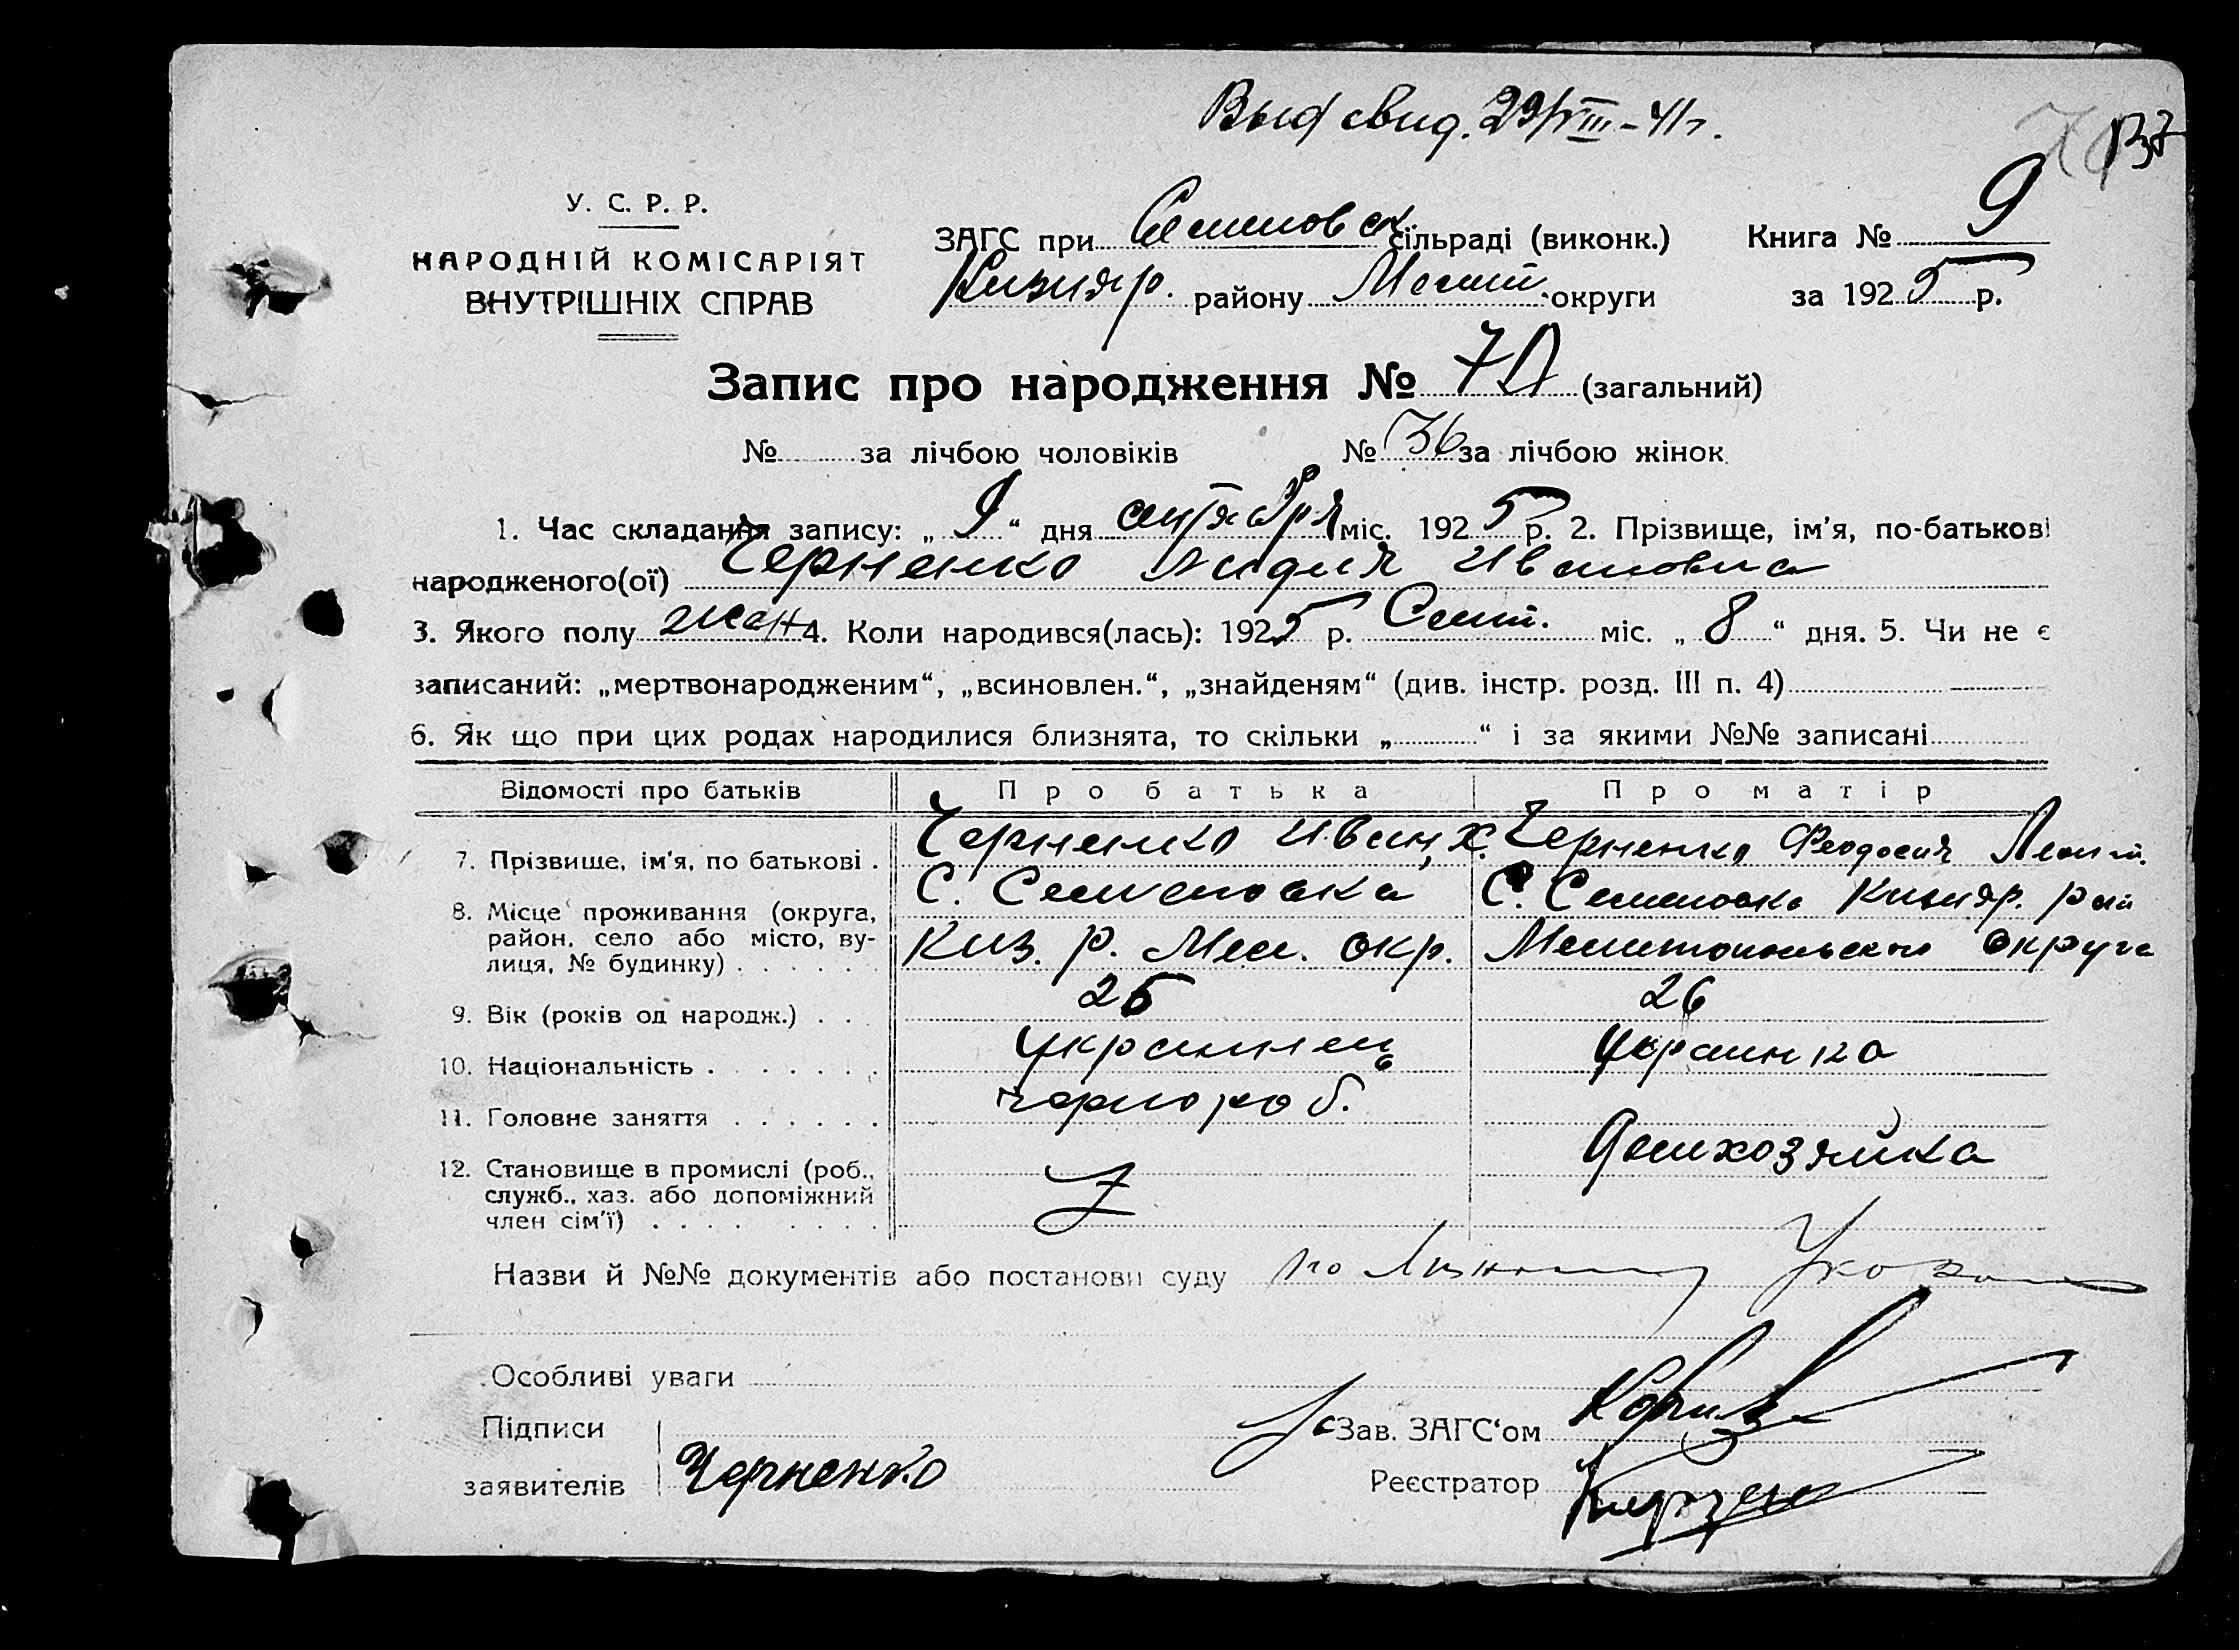 Выд свид. 29/VIII-41 г.
137
У. С. Р. Р.
НАРОДНІЙ КОМІСАРІЯТ
ВНУТРІШНІХ СПРАВ
ЗАГС при Семеновск. сільраді (виконк.) Книга № 9
Кизияр. району Мелит. округи за 1925 р.
Запис про народження № 70 (загальний)
№ за лічбою чоловіків № 36 за лічбою жінок
1. Час складання запису: „9“ дня сентября міс. 1925 р. 2. Прізвище, ім'я, по-батькові
народженого(ої) Черненко Лидия Ивановна
3. Якого полу жен 4. Коли народився(лась): 1925 р. Сент. міс. „8“ дня. 5. Чи не є
записаний: „мертвонародженим“, „всиновлен.“, „знайденям“ (див. інстр. розд. III п. 4)
6. Як що при цих родах народилися близнята, то скільки „ “ і за якими №№ записані
Відомості про батьків Про батька Про матір
7. Прізвище, ім'я, по батькові . Черненко Иван Х. Черненко Феодосия
8. Місце проживання (округа, район, село або місто, вулиця, № будинку) С. Семеновка С. Семеновка Кизияр. рай
Киз. р. Мел. окр. Мелитопольского округа
9. Вік (років од народж.) 25 26
10. Національність Украинец Украинка
11. Головне заняття чернораб.
12. Становище в промислі (роб., служб., хаз. або допоміжний член сім'ї) Домхозяйка
Назви й №№ документів або постанови суду по
Особливі уваги
Підписи Зав. ЗАГС'ом
заявителів Черненко Реєстратор